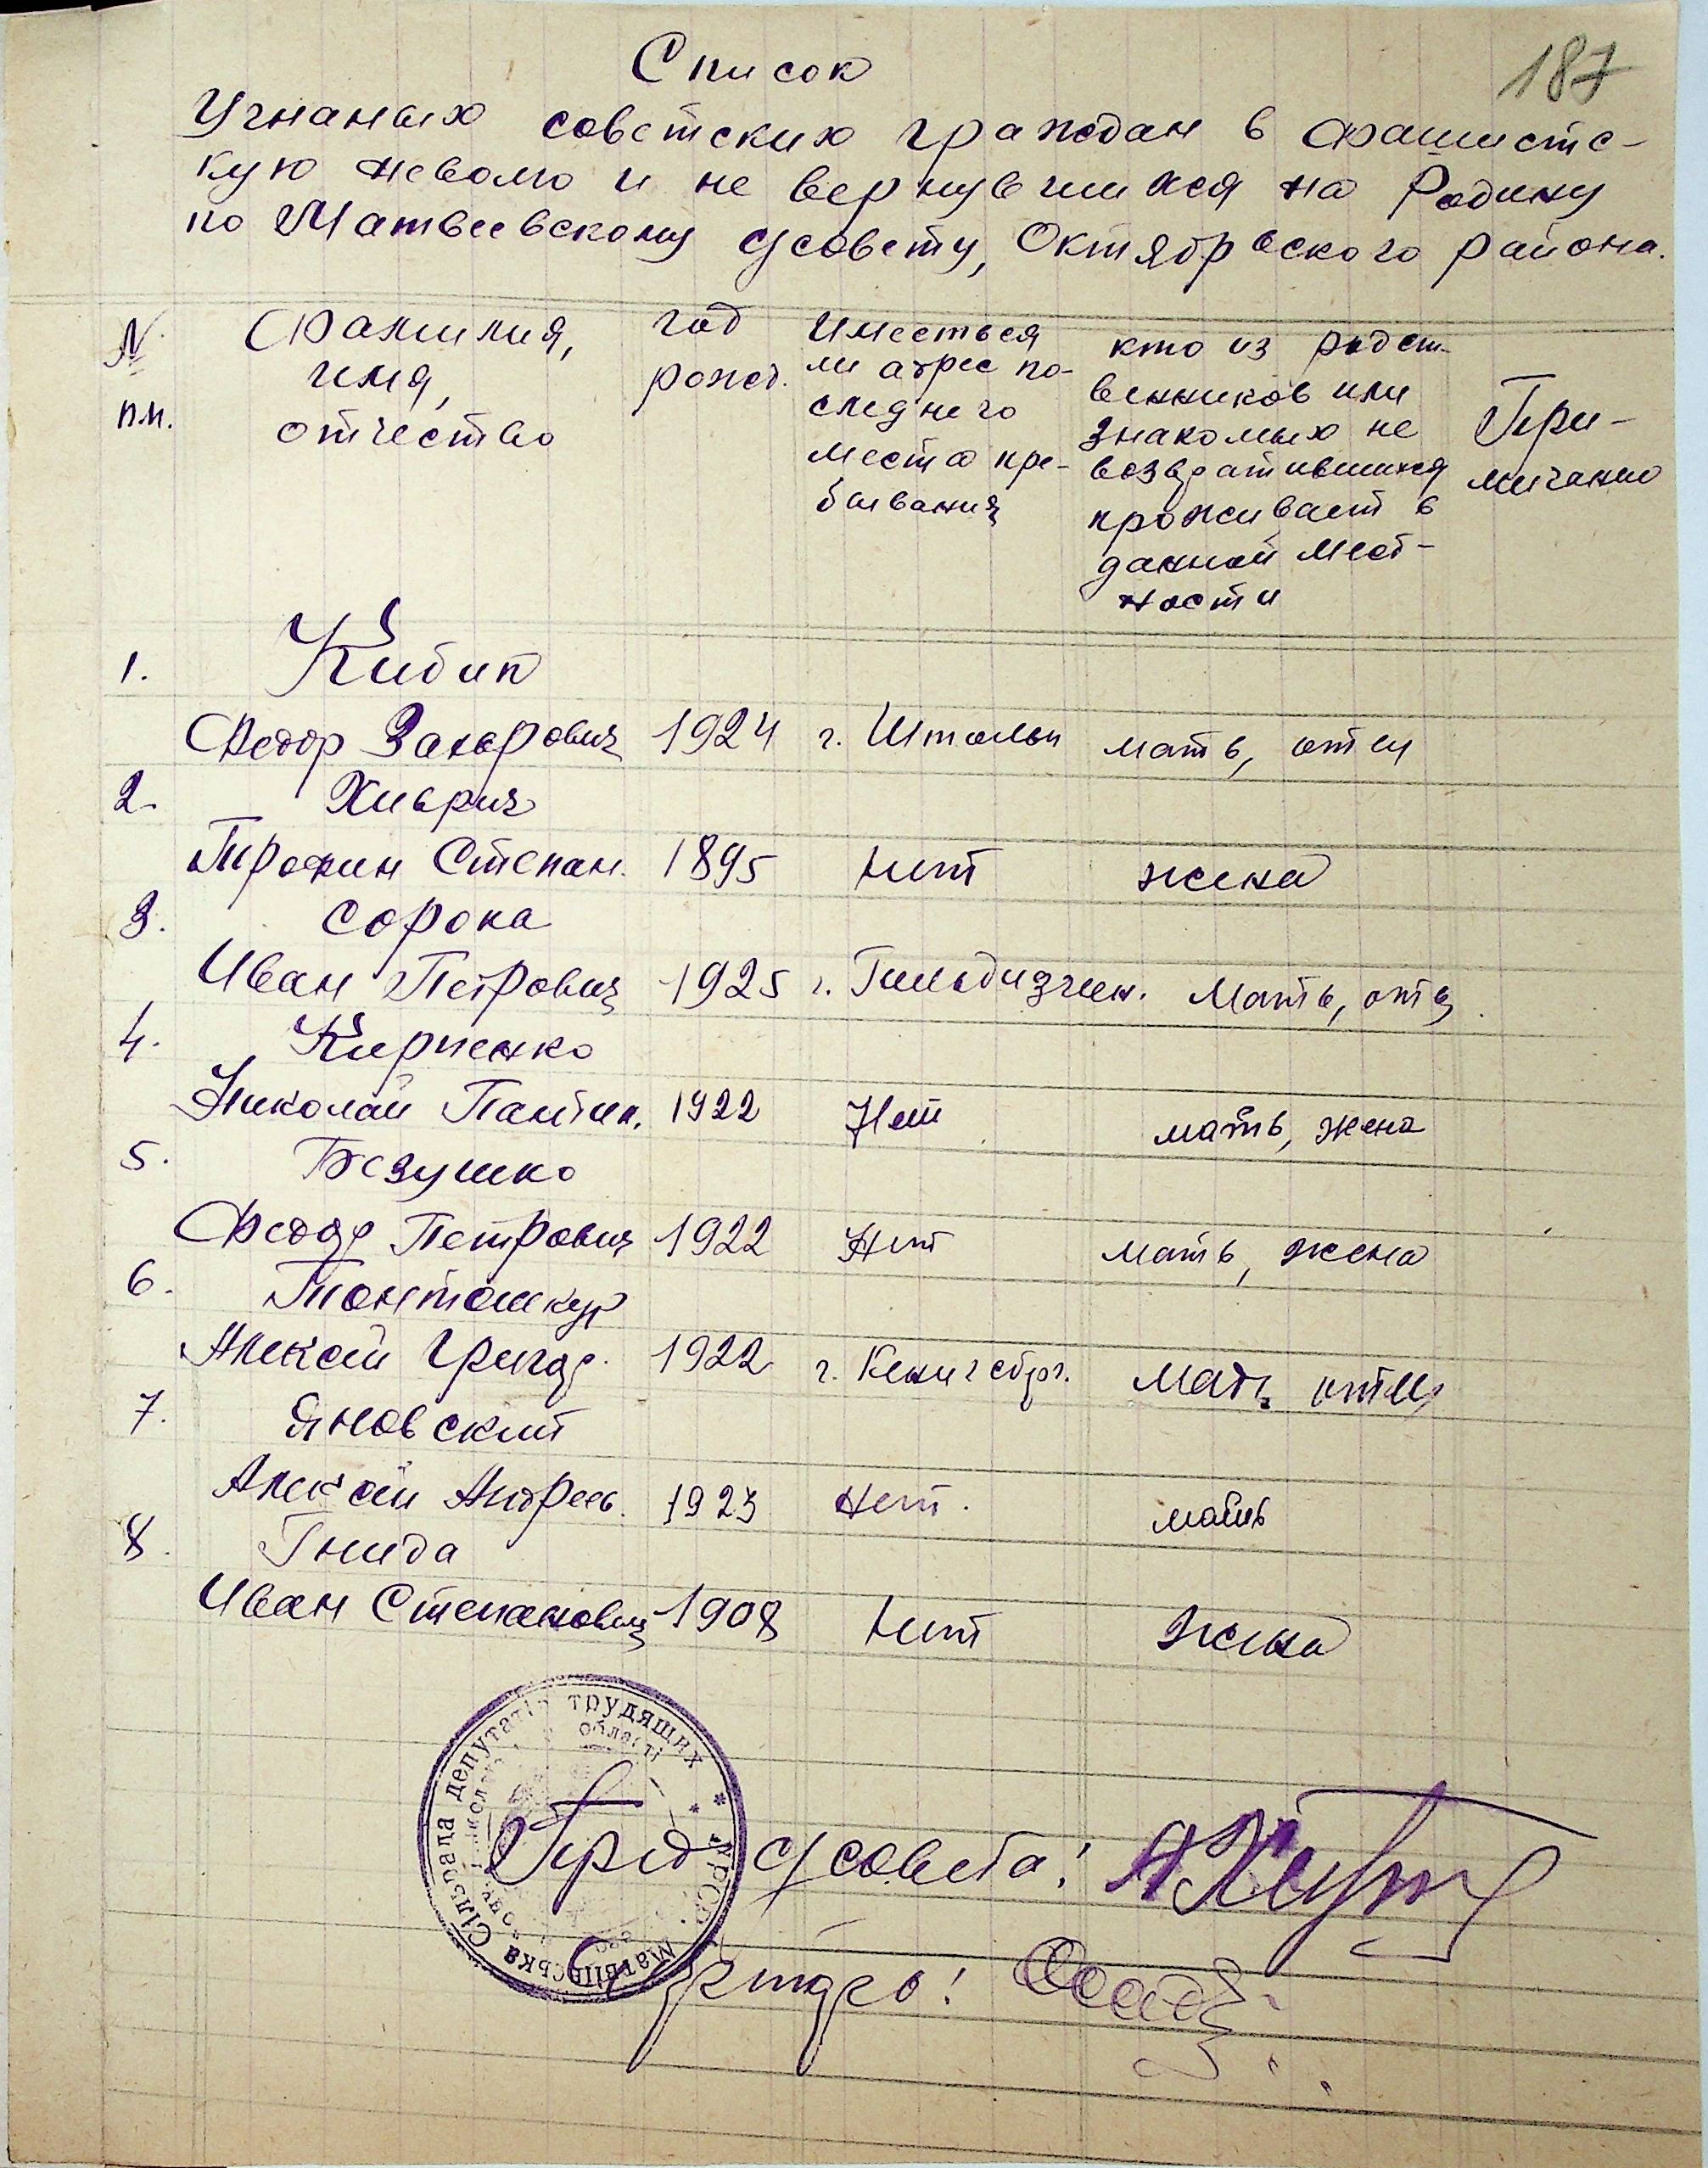 187
Список
Угнаных советских граждан в фашистс-
кую неволю и не вернувшихся на Родину
по Матвеевскому с/совету, Октябрьского района.
№ п.п.
Фамилия, имя, отчество
год рожд.
Имееться ли адрес последнего места пребывания
кто из родственников или знакомых не возвратившихся проживает в данной местности
Примичание
1. Кибип
Федор Захарович 1924 г. Штольп мать, отец
2. Хиврич
Трофим Степан. 1895 Нет жена
3. Сорока
Иван Петрович 1925 г. мать, отец
4. Кириенко
Николай Пантил. 1922 Нет мать, жена
5. Безушко
Федор Петрович 1922 Нет мать, жена
6. Тонтошкур
Алексей Григор. 1922 г. Кенигсберг. Мать отец
7. Яновский
Алексей Андреев. 1923 нет. мать
8. Гнида
Иван Степанович 1908 Нет жена
Матвіївська Сільрада депутатів трудящих * УРСР *
області
Пред с/совета:
Секретарь: